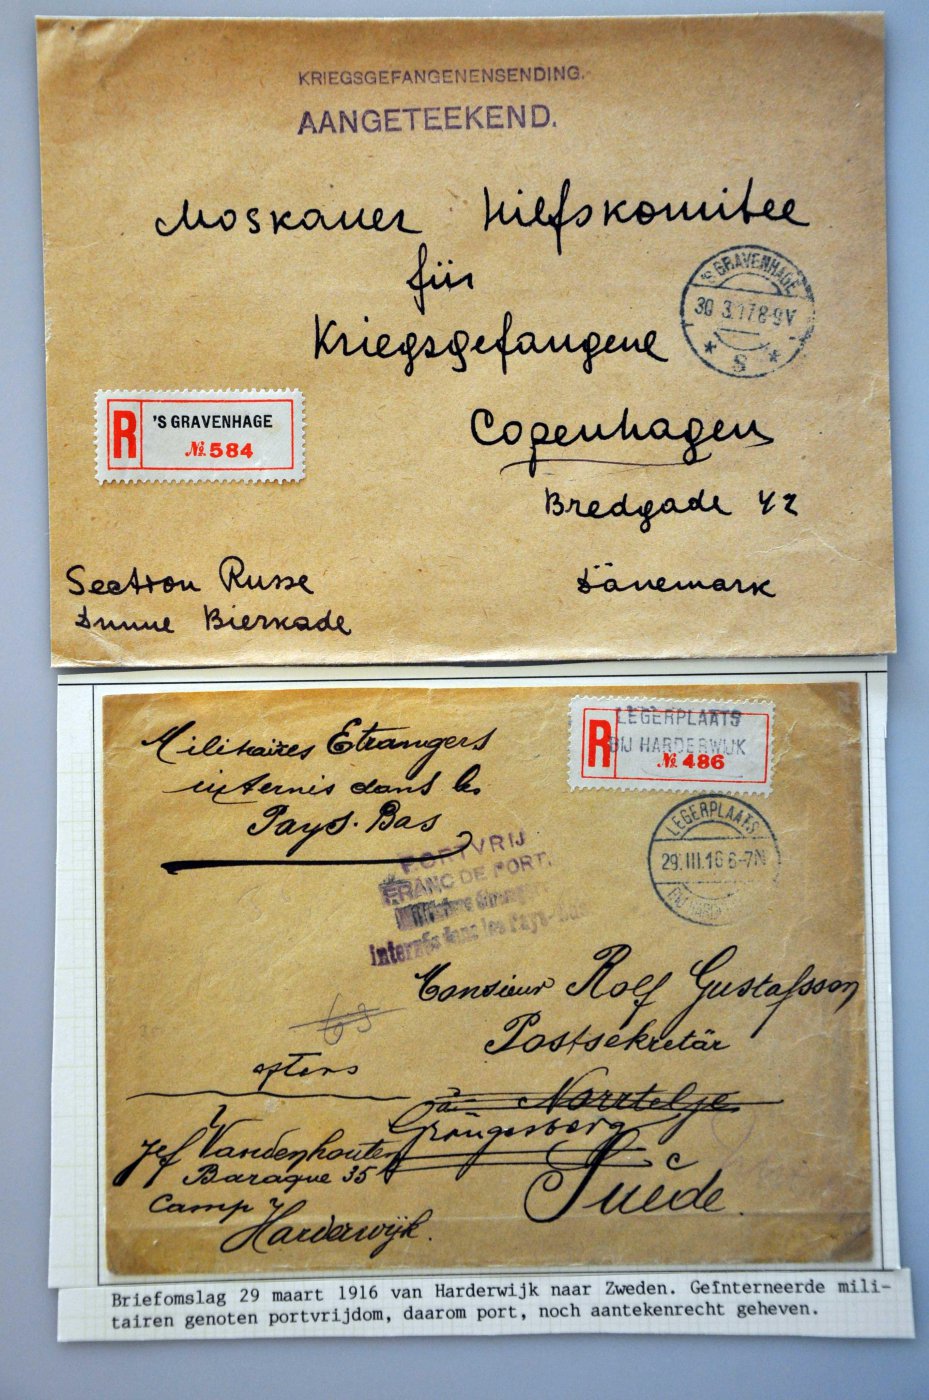 KRIEGSGEFANGENENSENDING.
AANGETEEKEND.
Moskauer Hilfskomitee
für
Kriegsgefangene
'S GRAVENHAGE
30 3.17 8-9V
S
R 'S GRAVENHAGE
№ 584
Copenhagen
Bredgade 42
Dänemark
Section Russe
Dunne Bierkade
Militaires Etrangers
internis dans les
Pays-Bas
R LEGERPLAATS
BIJ HARDERWIJK
№ 486
LEGERPLAATS
29.III.16 6-7N
PORTVRIJ
FRANC DE PORT.
Militaires étrangers
internés dans les Pays-Bas
Monsieur Rolf Gustafsson
Postsekretär
63
à Norrtelje
Grängesberg
Suède.
Jef Vandenhouten
Baraque 35
Camp
Harderwijk.
Briefomslag 29 maart 1916 van Harderwijk naar Zweden. Geïnterneerde mili-
tairen genoten portvrijdom, daarom port, noch aantekenrecht geheven.